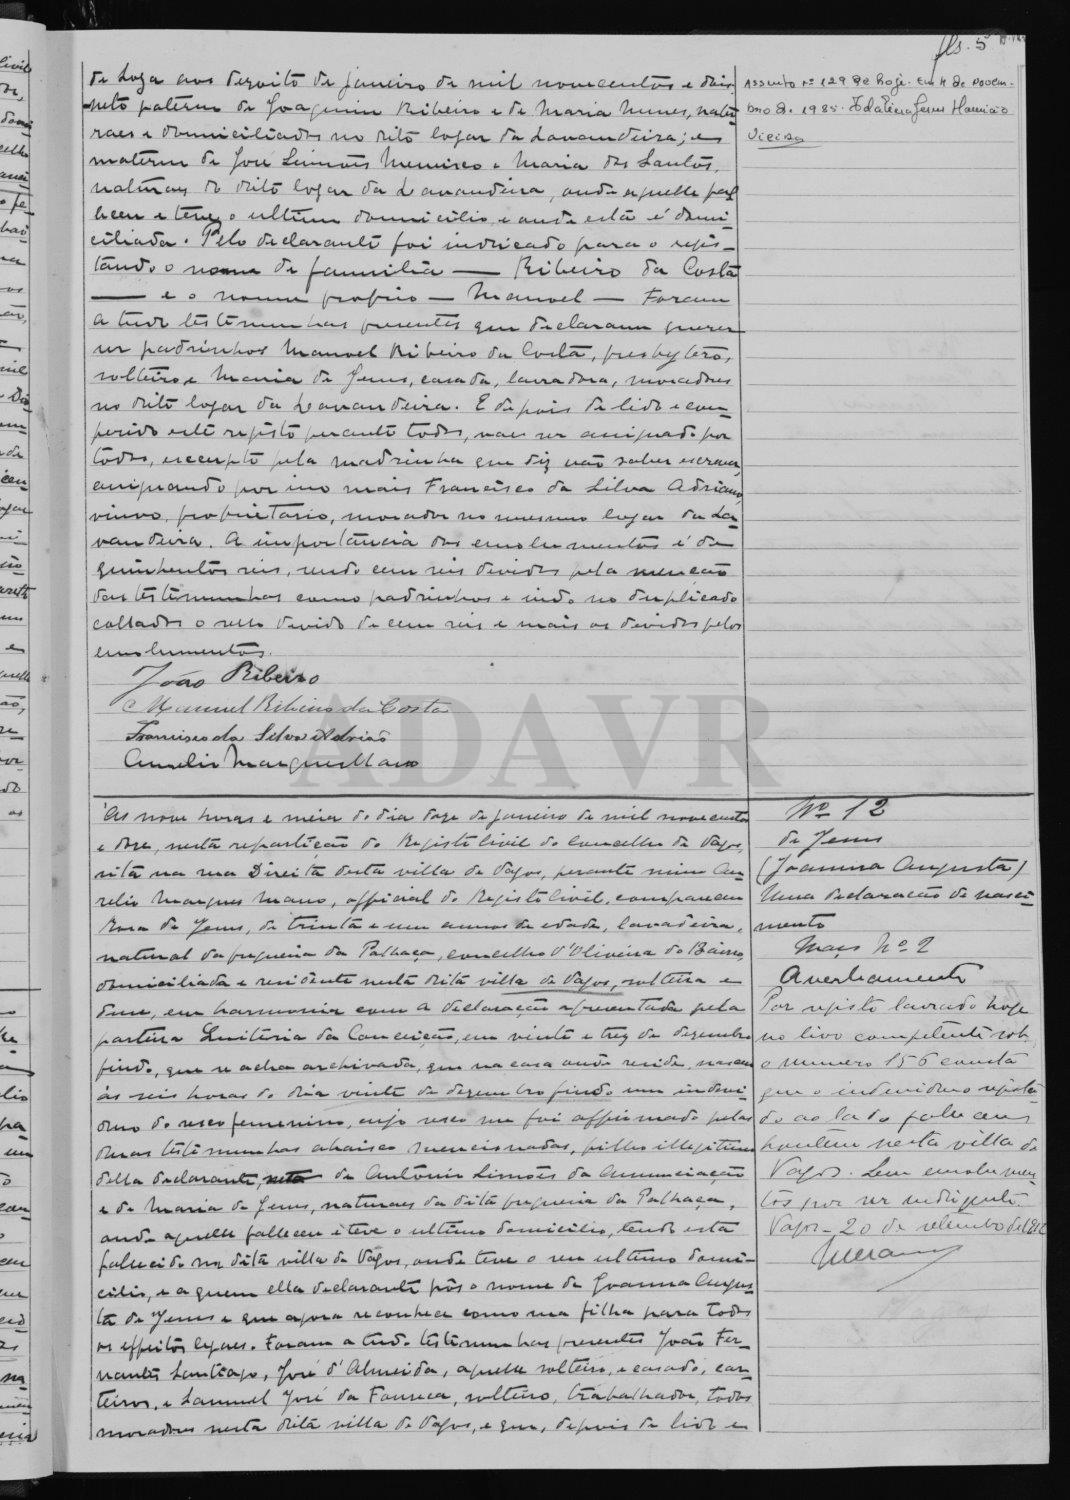 fls. 5
de Soza aos dezoito de janeiro de mil novecentos e dois,
neto paterno de Joaquim Ribeiro e de Maria Nunes, natu-
raes e domiciliados no dito logar da Lavandeira; e
materno de José Simões Menisco e Maria dos Santos,
naturaes do dito logar da Lavandeira, onde aquelle fal-
leceu e teve o ultimo domicilio e onde esta é domi-
ciliada. Pelo declarante foi indicado para o regis-
tando o nome de familia — Ribeiro da Costa
— e o nome proprio — Manoel — Foram
a tudo testemunhas presentes que declaram querer
ser padrinhos Manoel Ribeiro da Costa, presbytero,
solteiro e Maria de Jesus, casada, lavradora, moradores
no dito logar da Lavandeira. E depois de lido e con-
ferido este registo perante todos, vae ser assignado por
todos, excepto pela madrinha que diz não saber escrever,
assignando por isso mais Francisco da Silva Adrião,
viuvo, proprietario, morador no mesmo logar da La-
vandeira. A importancia dos emolumentos é de
quinhentos reis, sendo cem reis devidos pela menção
das testemunhas como padrinhos e indo no duplicado
collados o sello devido de cem reis e mais os devidos pelos
emolumentos.
João Ribeiro
Manuel Ribeiro da Costa
Francisco da Silva Adrião
Aurelio Marques Mano
Assento nº 129 de hoje. Em 4 de Novem-
bro de 1985.
Vieira
ADAVR
Ás nove horas e meia do dia doze de janeiro de mil novecentos
e doze, nesta repartição do Registo Civil do Concelho de Vagos,
sita na rua Direita desta villa de Vagos, perante mim Au-
relio Marques Mano, official do Registo Civil, compareceu
Rosa de Jesus, de trinta e um annos de edade, lavadeira,
natural da freguesia da Palhaça, concelho d'Oliveira do Bairro,
domiciliada e residente nesta dita villa de Vagos, solteira e
disse, em harmonia com a declaração apresentada pela
parteira Luiteria da Conceição, em vinte e trez de dezembro
findo, que se acha archivada, que na casa onde reside, nasceu
ás seis horas do dia vinte de dezembro findo um indivi-
duo do sexo femenino, cujo sexo me foi affirmado pelas
duas testemunhas abaixo mencionadas, filho illegitimo
della declarante, neto de Antonio Simões da Annunciação
e de Maria de Jesus, naturaes da dita freguesia da Palhaça,
onde aquelle falleceu e teve o ultimo domicilio, tendo esta
fallecido na dita villa de Vagos, onde teve o seu ultimo domi-
cilio, e a quem ella declarante pôs o nome de Joanna Augus-
ta de Jesus e que agora reconhece como sua filha para todos
os effeitos legaes. Foram a tudo testemunhas presentes João Fer-
nandes Santiago, José d'Almeida, aquelle solteiro, e casado, car-
teiros, e Samuel José da Fonseca, solteiro, trabalhador, todos
moradores nesta dita villa de Vagos, e que, depois de lido e
Nº 12
de Jesus
(Joanna Augusta)
Uma declaração de nasci-
mento
Maço Nº 2
Averbamento
Por registo lavrado hoje
no livro competente sob
o numero 156 consta
que o individuo regista-
do ao lado falleceu
hontem nesta villa de
Vagos. Sem emolumen-
tos por ser indigente.
Vagos – 20 de setembro de 1912